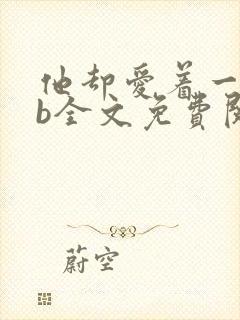 他却爱着一
b全文免費阅
蔚空